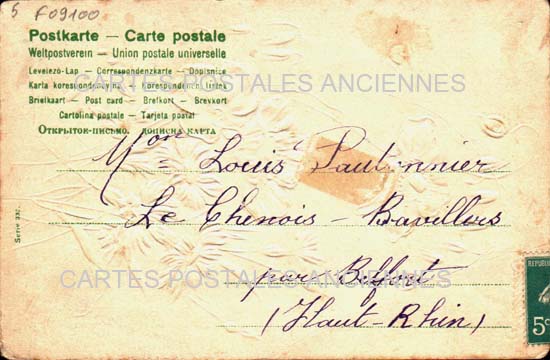 5 F09100
Postkarte — Carte postale
Weltpostverein — Union postale universelle
Levelező-Lap — Correspondenzkarte — Dopisnice
Karta korespondencyjna — Korespondenčni listek
Briefkaart — Post card — Brefkort — Brevkort
Cartolina postale — Tarjeta postal
Открытое-письмо. дописна карта
CARTES POSTALES ANCIENNES
Mon Louis
Le Chenois - Bavillers
CARTES POSTALES ANCIENNES
par Belfort
(Haut-Rhin)
Serie 337.
5c